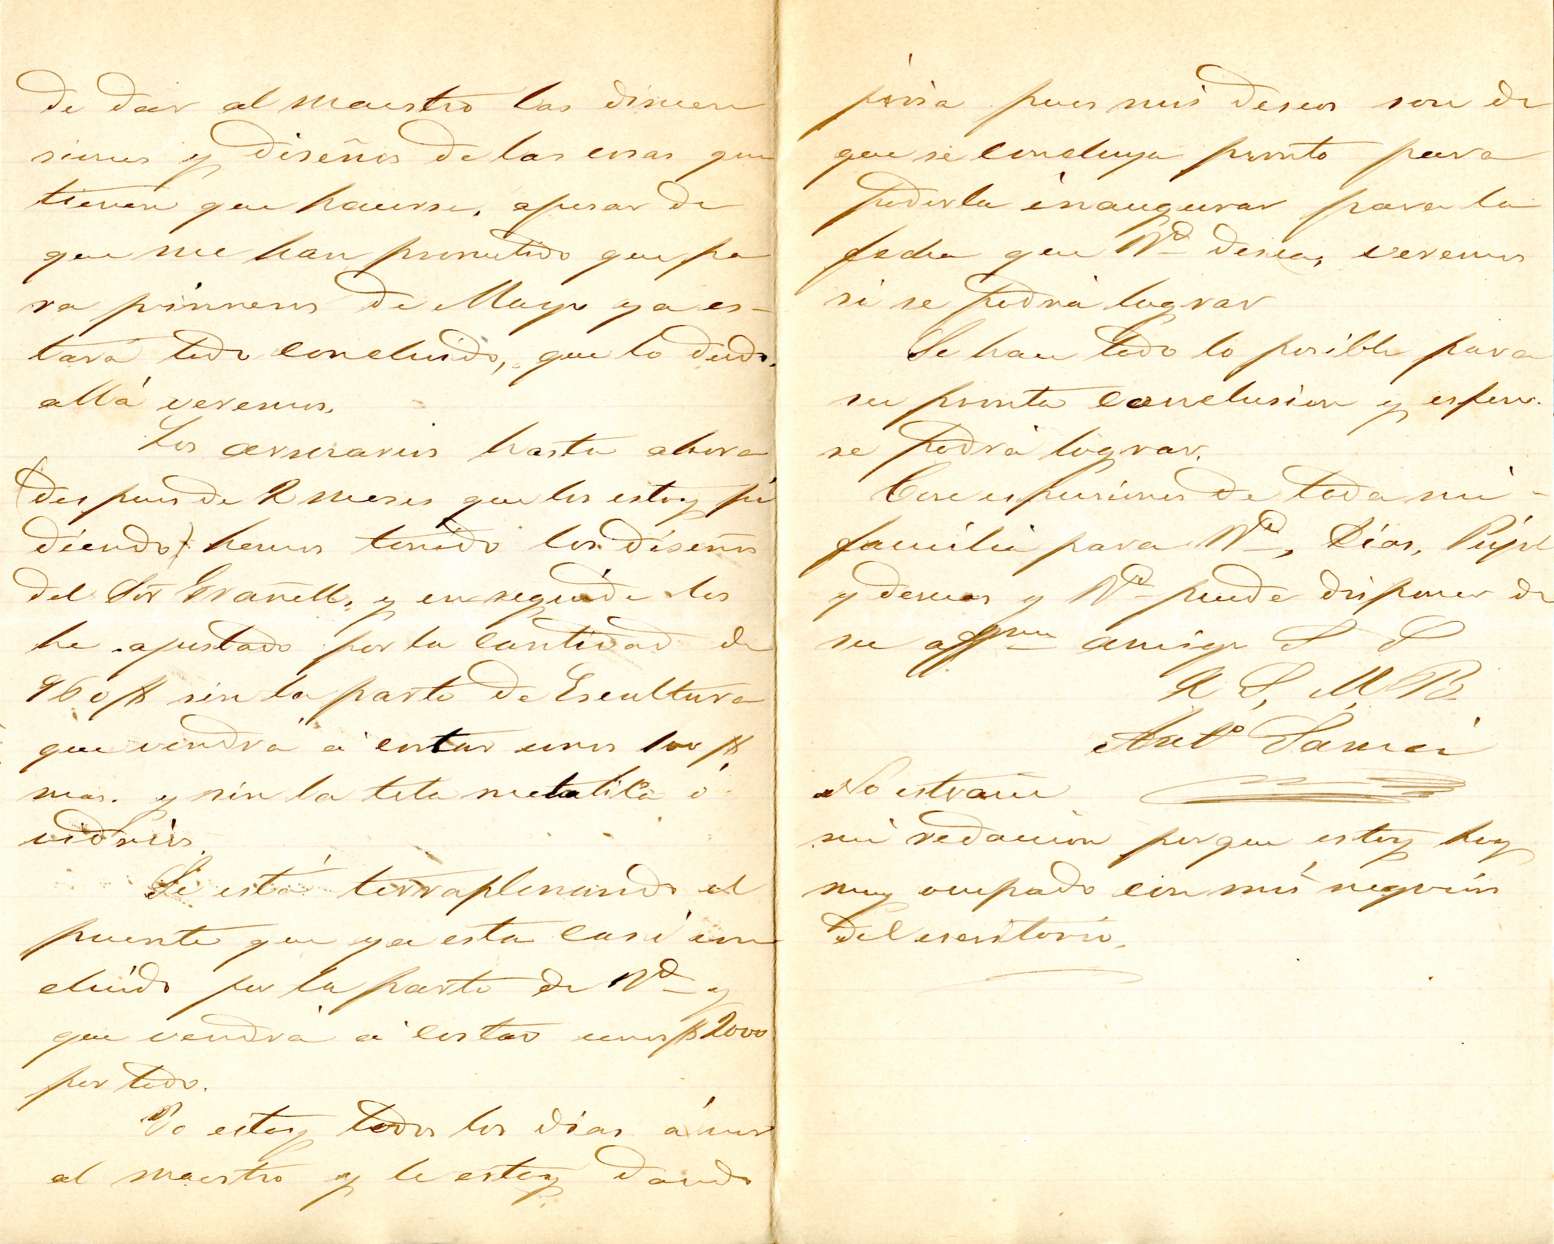 de dar al maestro las dimen
siones y diseños de las cosas que
tienen que hacerse, apesar de
que me han prometido que pa
ra primeros de Mayo ya es-
tará todo concluido, que lo dudo,
allá veremos.
Los armarios hasta ahora
(despues de 2 meses que los estoy pi
diendo) hemos tenido los diseños
del Sor Grañell, y en seguida los
he apustado por la cantidad de
960 $ sin la parte de Escultura
que vendrá á costar unos 100 $
mas. y sin la tela metalica ó
vidrios.
Se está terraplenando el
puente que ya esta casi con
cluido por la parte de Vd y
que vendrá á costar unos $ 2000
por todo.
Yo estoy todos los dias á ver
al maestro y le estoy dando
prisa pues mis deseos son de
que se concluya pronto para
poderla inaugurar para la
fecha que Vd desea, veremos
si se podrá lograr
Se hace todo lo posible para
su pronta conclusion y espero
se podrá lograr.
de toda mi
familia para Vd, Dias, Pujol
y demas y Vd puede disponer de
su affmo amigo S S
Q S, M, B
Anto Samá
No estrañe
mi redaccion porque estoy hoy
muy ocupado con mis negocios
del escritorio.